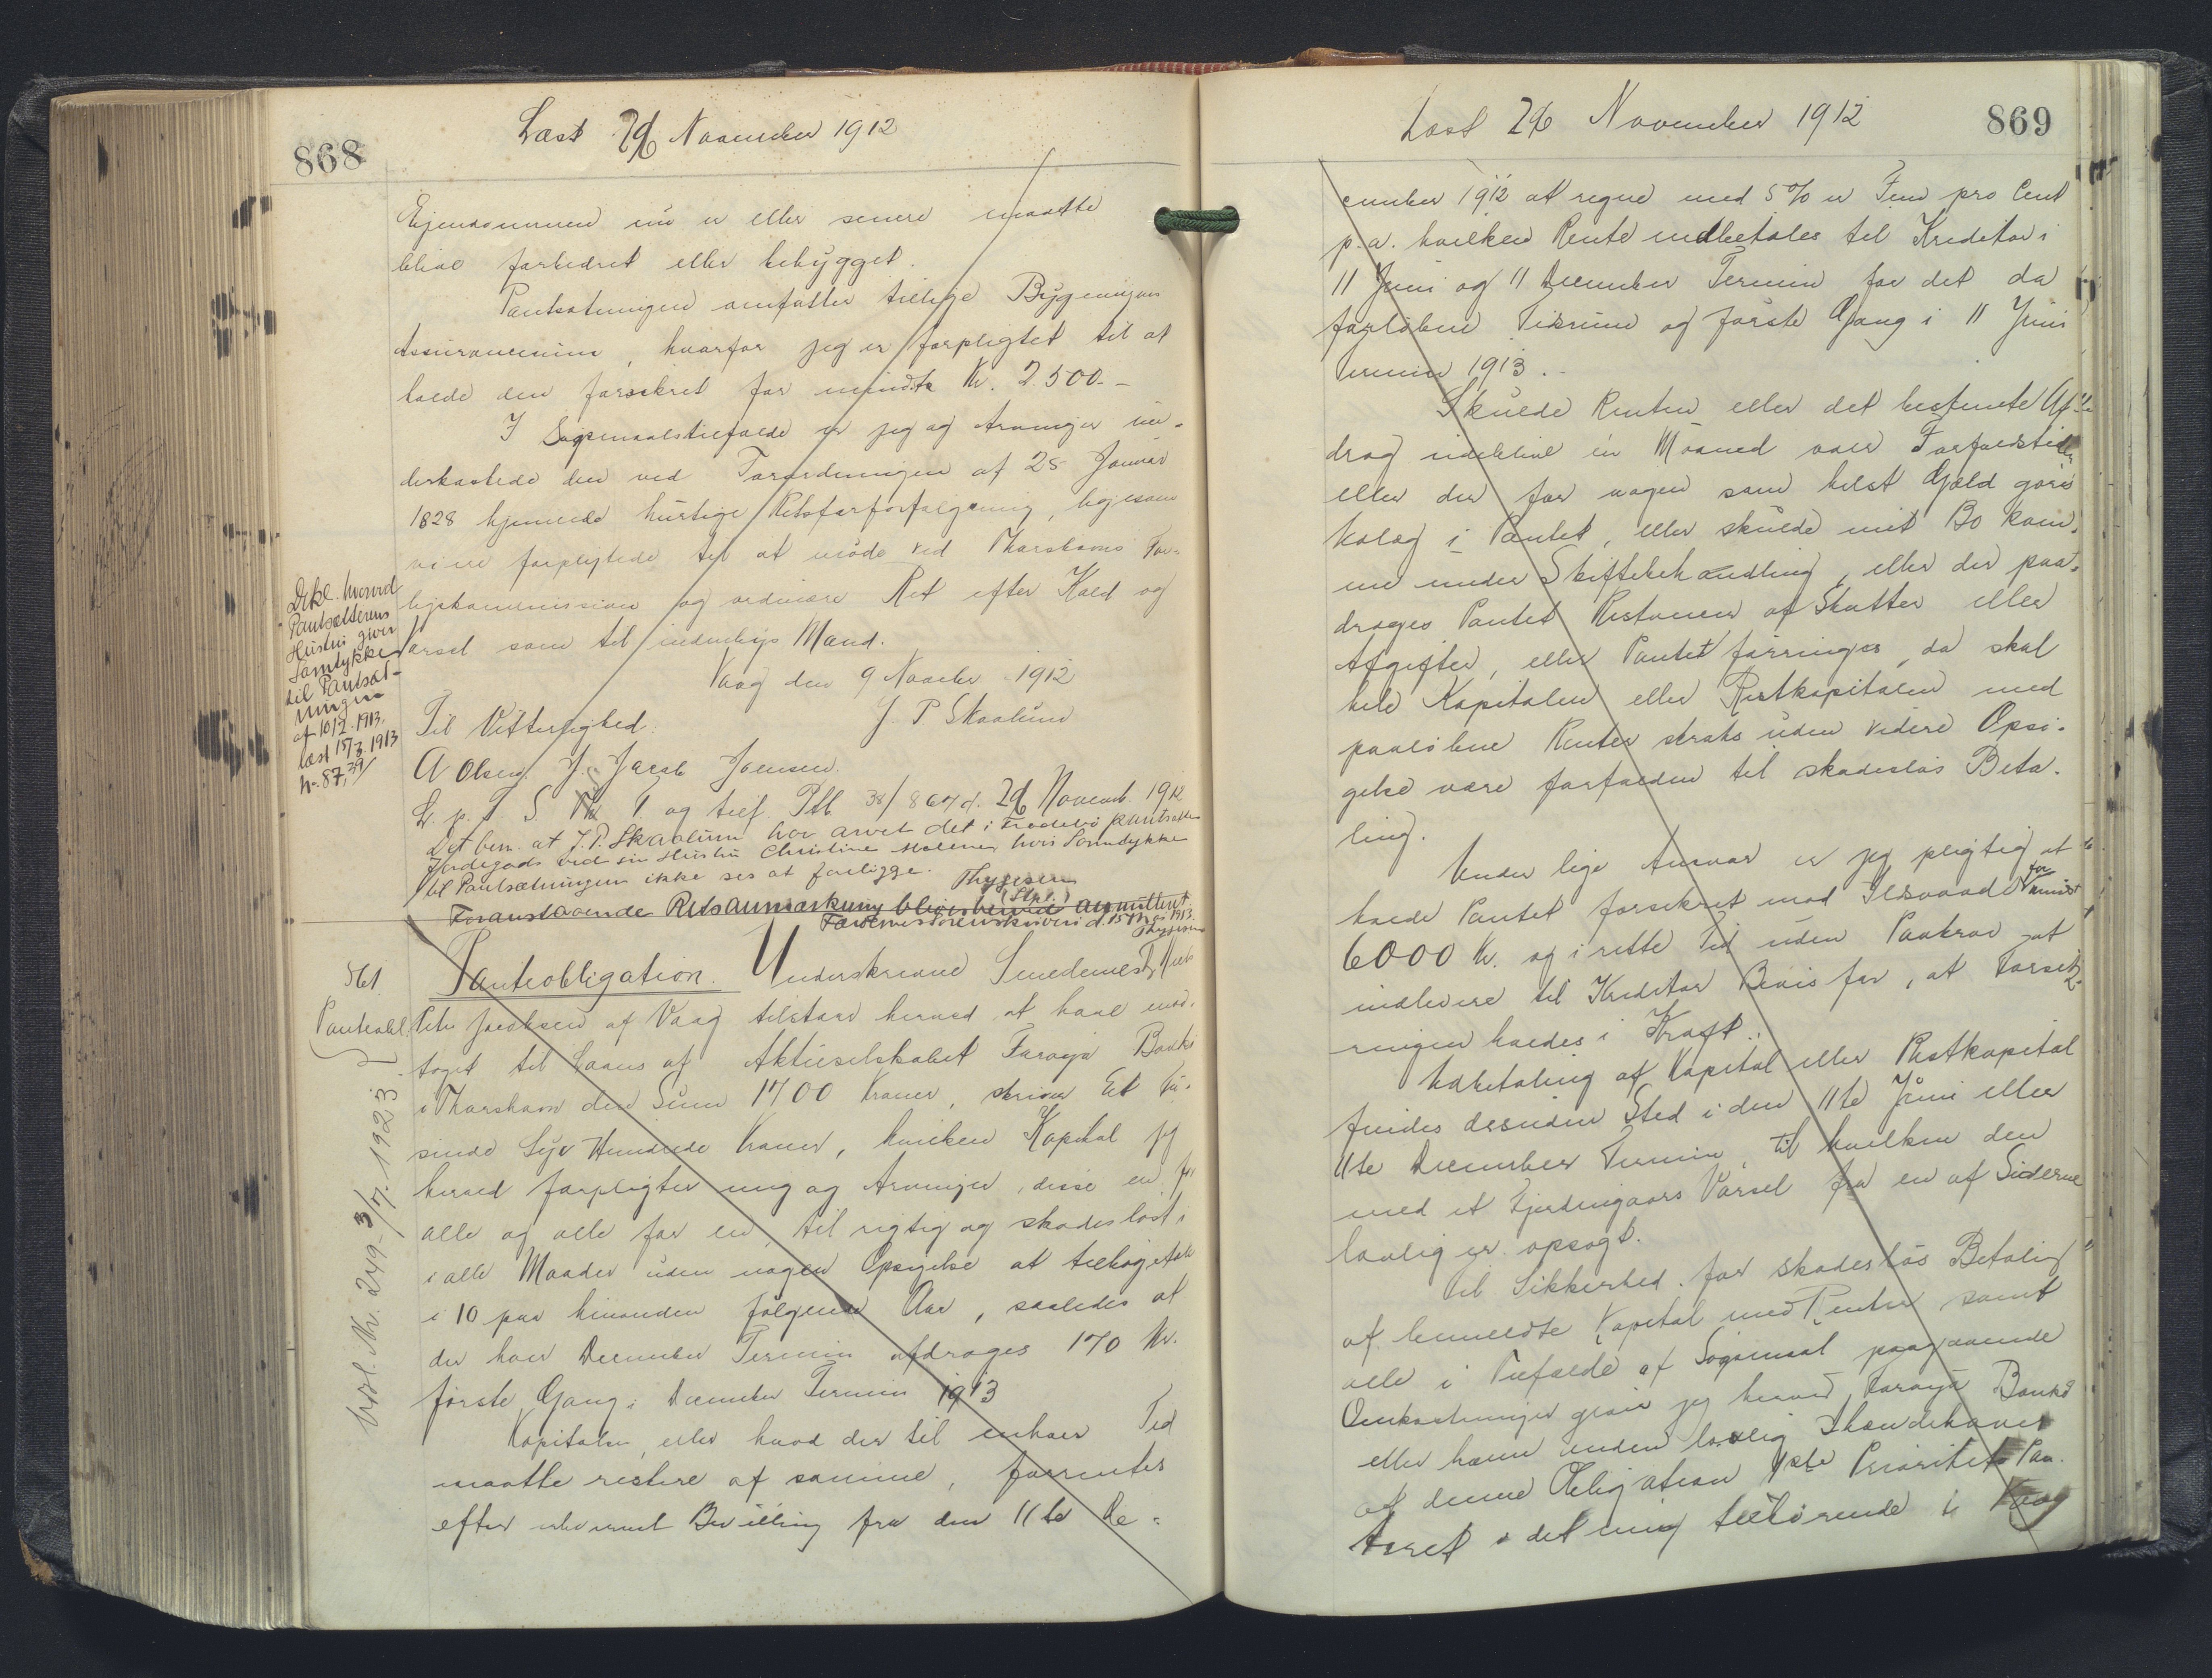 868
Læst 26 November 1912
Ejendommen nu er eller senere maatte
blive forbedret eller bebygget.
Pantsætningen omfatter tillige Bygningens
Assurancesum, hvorfor jeg er forpligtet til at
holde den forsikret for mindst Kr. 2.500.-
I Søgsmaalstilfælde er jeg og Arvinger un-
derkastede den ved Forordningen af 28 Januar
1828 hjemlede hurtige Retsforfølgning, ligesom
vi ere forpligtede til at møde ved Thorshavns For-
ligskommission og ordinære Ret efter Kald og
Varsel som til indenbys Mand.
Vaag den 9 November 1912
Til Vitterlighed. J P Skaalum
A Olsen. J. Jacob Joensen.
L. p. T. S. T. og tilf. Ptb. 38/867 d. 26 Novemb. 1912
Det bem. at J. P. Skaalum har arvet det i Frodebø pantsatte
Jordegods ved sin Hustru Christine Malene, hvis Samtykke
til Pantsætningen ikke ses at foreligge.
Thygesen
(Stpl.)
Foranstaaende Retsanmærkning bliver herved annulleret.
Færøernes Sorenskriveri d. 15 Mrs 1913.
Thygesen
Dekl. hvorved
Pantsætterens
Hustru giver
Samtykke
til Pantsæt-
ningen
af 10/2. 1913.
læst 15/3. 1913
N. 87, 39/
561.
Panteobl.
Udsl. Nr. 249 - 3/7. 1923
Panteobligation. Underskrevne Smedemest.
Peter Jacobsen af Vaag tilstaar herved at have mod-
taget til Laans af Aktieselskabet Føroya Banki
i Thorshavn den Sum 1700 Kroner, skriver Et Tu-
sinde Syv Hundrede Kroner, hvilken Kapital jeg
herved forpligter mig og Arvinger, disse en for
alle og alle for en, til rigtig og skadesløst i
i alle Maader uden nogen Opsigelse at tilbagebetale
i 10 paa hinanden følgende Aar, saaledes at
der hver December Termin afdrages 170 Kr.
første Gang i December Termin 1913
Kapitalen, eller hvad der til enhver Tid
maatte restere af samme, forrentes
efter erhvervet Bevilling fra den 11te De-
869
Læst 26 November 1912
cember 1912 at regne med 5 % er Fem pro Cent
p.a. hvilken Rente indbetales til Kreditor i
11 Juni og 11 December Termin for det da
forløbne Tidsrum og første Gang i 11 Juni
Termin 1913.
Skulde Renten eller det bestemte Af-
drag udeblive én Maaned over Forfaldstid
eller der for nogen som helst Gjæld gøres
Udlæg i Pantet, eller skulde mit Bo kom-
me under Skiftebehandling, eller der paa-
drages Pantet Restancer af Skatter eller
Afgifter, eller Pantet forringes, da skal
hele Kapitalen eller Restkapitalen med
paaløbne Renter straks uden videre Opsi-
gelse være forfalden til skadesløs Beta-
ling.
Under lige Ansvar er jeg pligtig at
holde Pantet forsikret mod Ildsvaade for mindst
6000 Kr. og i rette Tid uden Paakrav at
indlevere til Kreditor Bevis for, at Forsik-
ringen holdes i Kraft.
Udbetaling af Kapital eller Restkapital
findes desuden Sted i den 11te Juni eller
11te December Termin, til hvilken den
med et Fjerdingaars Varsel fra en af Siderne
lovlig er opsagt.
Til Sikkerhed for skadesløs Betaling
af bemeldte Kapital med Renter samt
alle i Tilfælde af Søgsmaal paagaaende
Omkostninger giver jeg herved Føroya Banki
eller hvem anden lovlig Ihændehaver
af denne Obligation 1ste Prioritets Pan-
teret i det mig tilhørende i Vaag